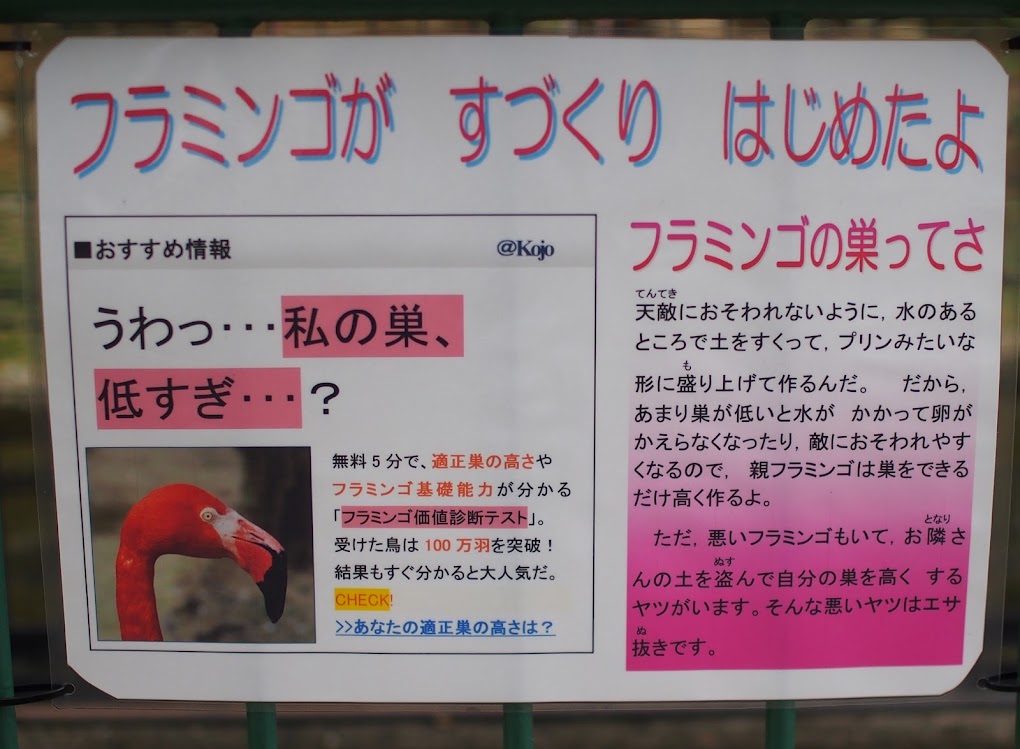 フラミンゴが すづくり はじめたよ
■おすすめ情報 @Kojo
うわっ・・・私の巣、
低すぎ・・・？
無料５分で、適正巣の高さや
フラミンゴ基礎能力が分かる
「フラミンゴ価値診断テスト」。
受けた鳥は 100 万羽を突破！
結果もすぐ分かると大人気だ。
CHECK!
>>あなたの適正巣の高さは？
フラミンゴの巣ってさ
てんてき
天敵におそわれないように，水のある
ところで土をすくって，プリンみたいな
も
形に盛り上げて作るんだ。 だから，
あまり巣が低いと水が かかって卵が
かえらなくなったり，敵におそわれやす
くなるので， 親フラミンゴは巣をできる
だけ高く作るよ。
となり
ただ，悪いフラミンゴもいて，お隣さ
ぬす
んの土を盗んで自分の巣を高く する
ヤツがいます。そんな悪いヤツはエサ
ぬ
抜きです。